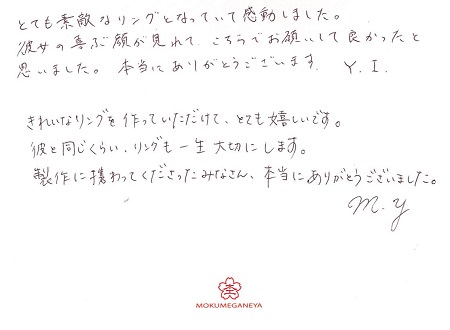 とても素敵なリングとなっていて感動しました。
彼女の喜ぶ顔が見れて、こちらでお願いして良かったと
思いました。本当にありがとうございます。 Y. I.
きれいなリングを作っていただけて、とても嬉しいです。
彼と同じくらい、リングも一生大切にします。
製作に携わってくださったみなさん、本当にありがとうございました。
M. Y
MOKUMEGANEYA